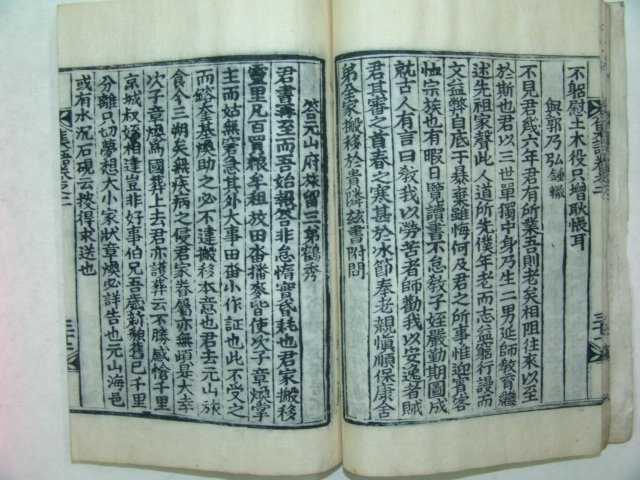 不躬慰土木役只增耿悵耳
與郭乃弘鍾轍
不見君幾六年君有所業吾則老矣相阻往來以至
於斯也君以三世單獨中身乃生二男延師教育繼
述先祖家聲此人道所先僕年老而志益窮行謾而
文益弊自底于暴棄雖悔何及君之所事惟迎賓客
恤宗族也有暇日覽讀書不怠教子姪嚴勤期圖成
就古人有言曰教我以勞苦者師勸我以安逸者賊
君其審之首春之寒甚於冰節奉老親愼順保康舍
弟全家搬移於貴隣玆書附問
答元山府旅留三弟鶴秀
君書再至而吾始報答非怠惰實昏耗也君家搬移
靈里凡百買粮牟租放田畓播麥皆使次子章煥掌
主而姑無窘急其外大事田畓小作証也此不受之
而綌奎基煥助之必不違搬移本意也君去元山旅
食今三朔矣無疾病之侵君家眷屬亦無頉是大幸
次子章煥爲國葬上去君亦護葬云不勝感愴千里
京城叔姪逢豈非好事伯兄吾歲薪頹舊已千里
分離只切夢想大小家狀章煥必詳告也元山海邑
或有水沉石硯云挾得求送也
三十一
三十二